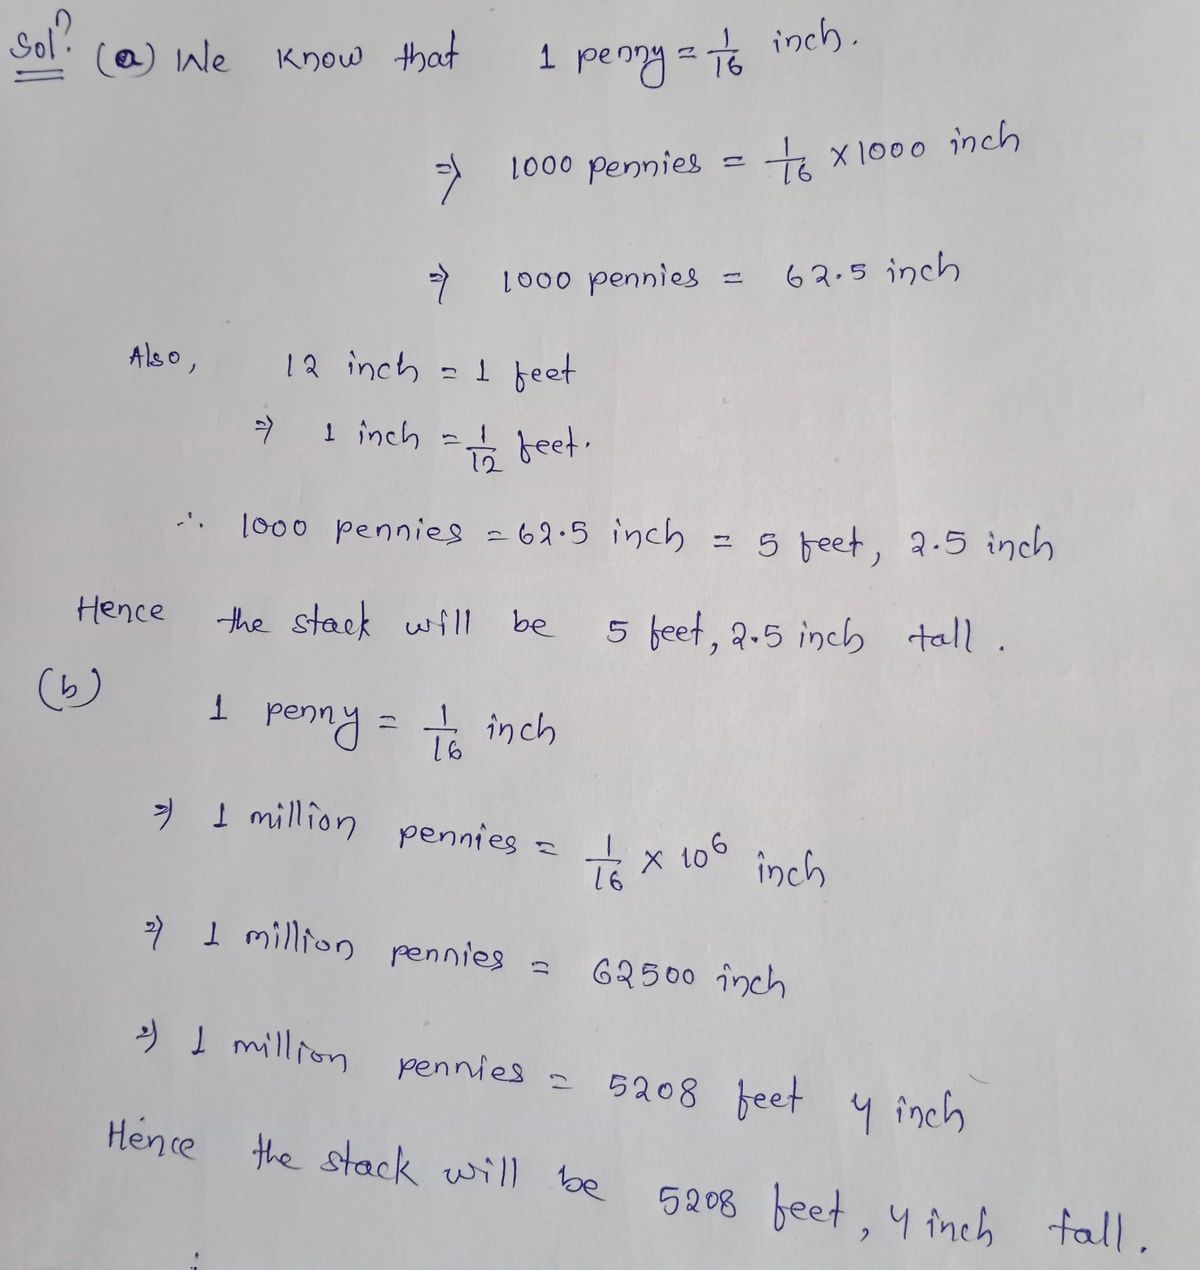 Solⁿ. (a) We know that 1 penny = 1/16 inch.
⇒ 1000 pennies = 1/16 × 1000 inch
⇒ 1000 pennies = 62.5 inch
Also, 12 inch = 1 feet
⇒ 1 inch = 1/12 feet.
∴ 1000 pennies = 62.5 inch = 5 feet, 2.5 inch
Hence the stack will be 5 feet, 2.5 inch tall.
(b)
1 penny = 1/16 inch
⇒ 1 million pennies = 1/16 × 10⁶ inch
⇒ 1 million pennies = 62500 inch
⇒ 1 million pennies = 5208 feet 4 inch
Hence the stack will be 5208 feet, 4 inch tall.